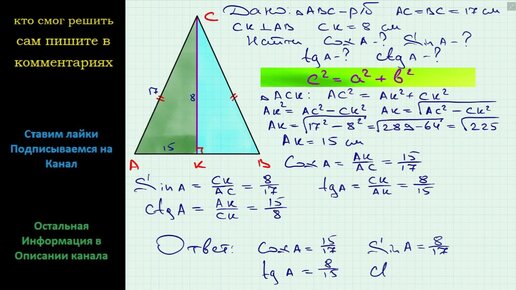 кто смог решить
сам пишите в
комментариях
Ставим лайки
Подписываемся на
Канал
Остальная
Информация в
Описании канала
C
17
8
15
A
K
B
Дано: △ABC – р/б AC=BC=17 см
CK⊥AB CK=8 см
Найти CosA-? SinA-?
tgA-? ctgA-?
c² = a² + b²
△ACK: AC² = AK² + CK²
AK² = AC² - CK² AK = √AC² - CK²
AK = √17² - 8² = √289-64 = √225
AK = 15 см
CosA = AK/AC = 15/17
SinA = CK/AC = 8/17 tgA = CK/AK = 8/15
ctgA = AK/CK = 15/8
Ответ: CosA = 15/17 SinA = 8/17
tgA = 8/15 ct